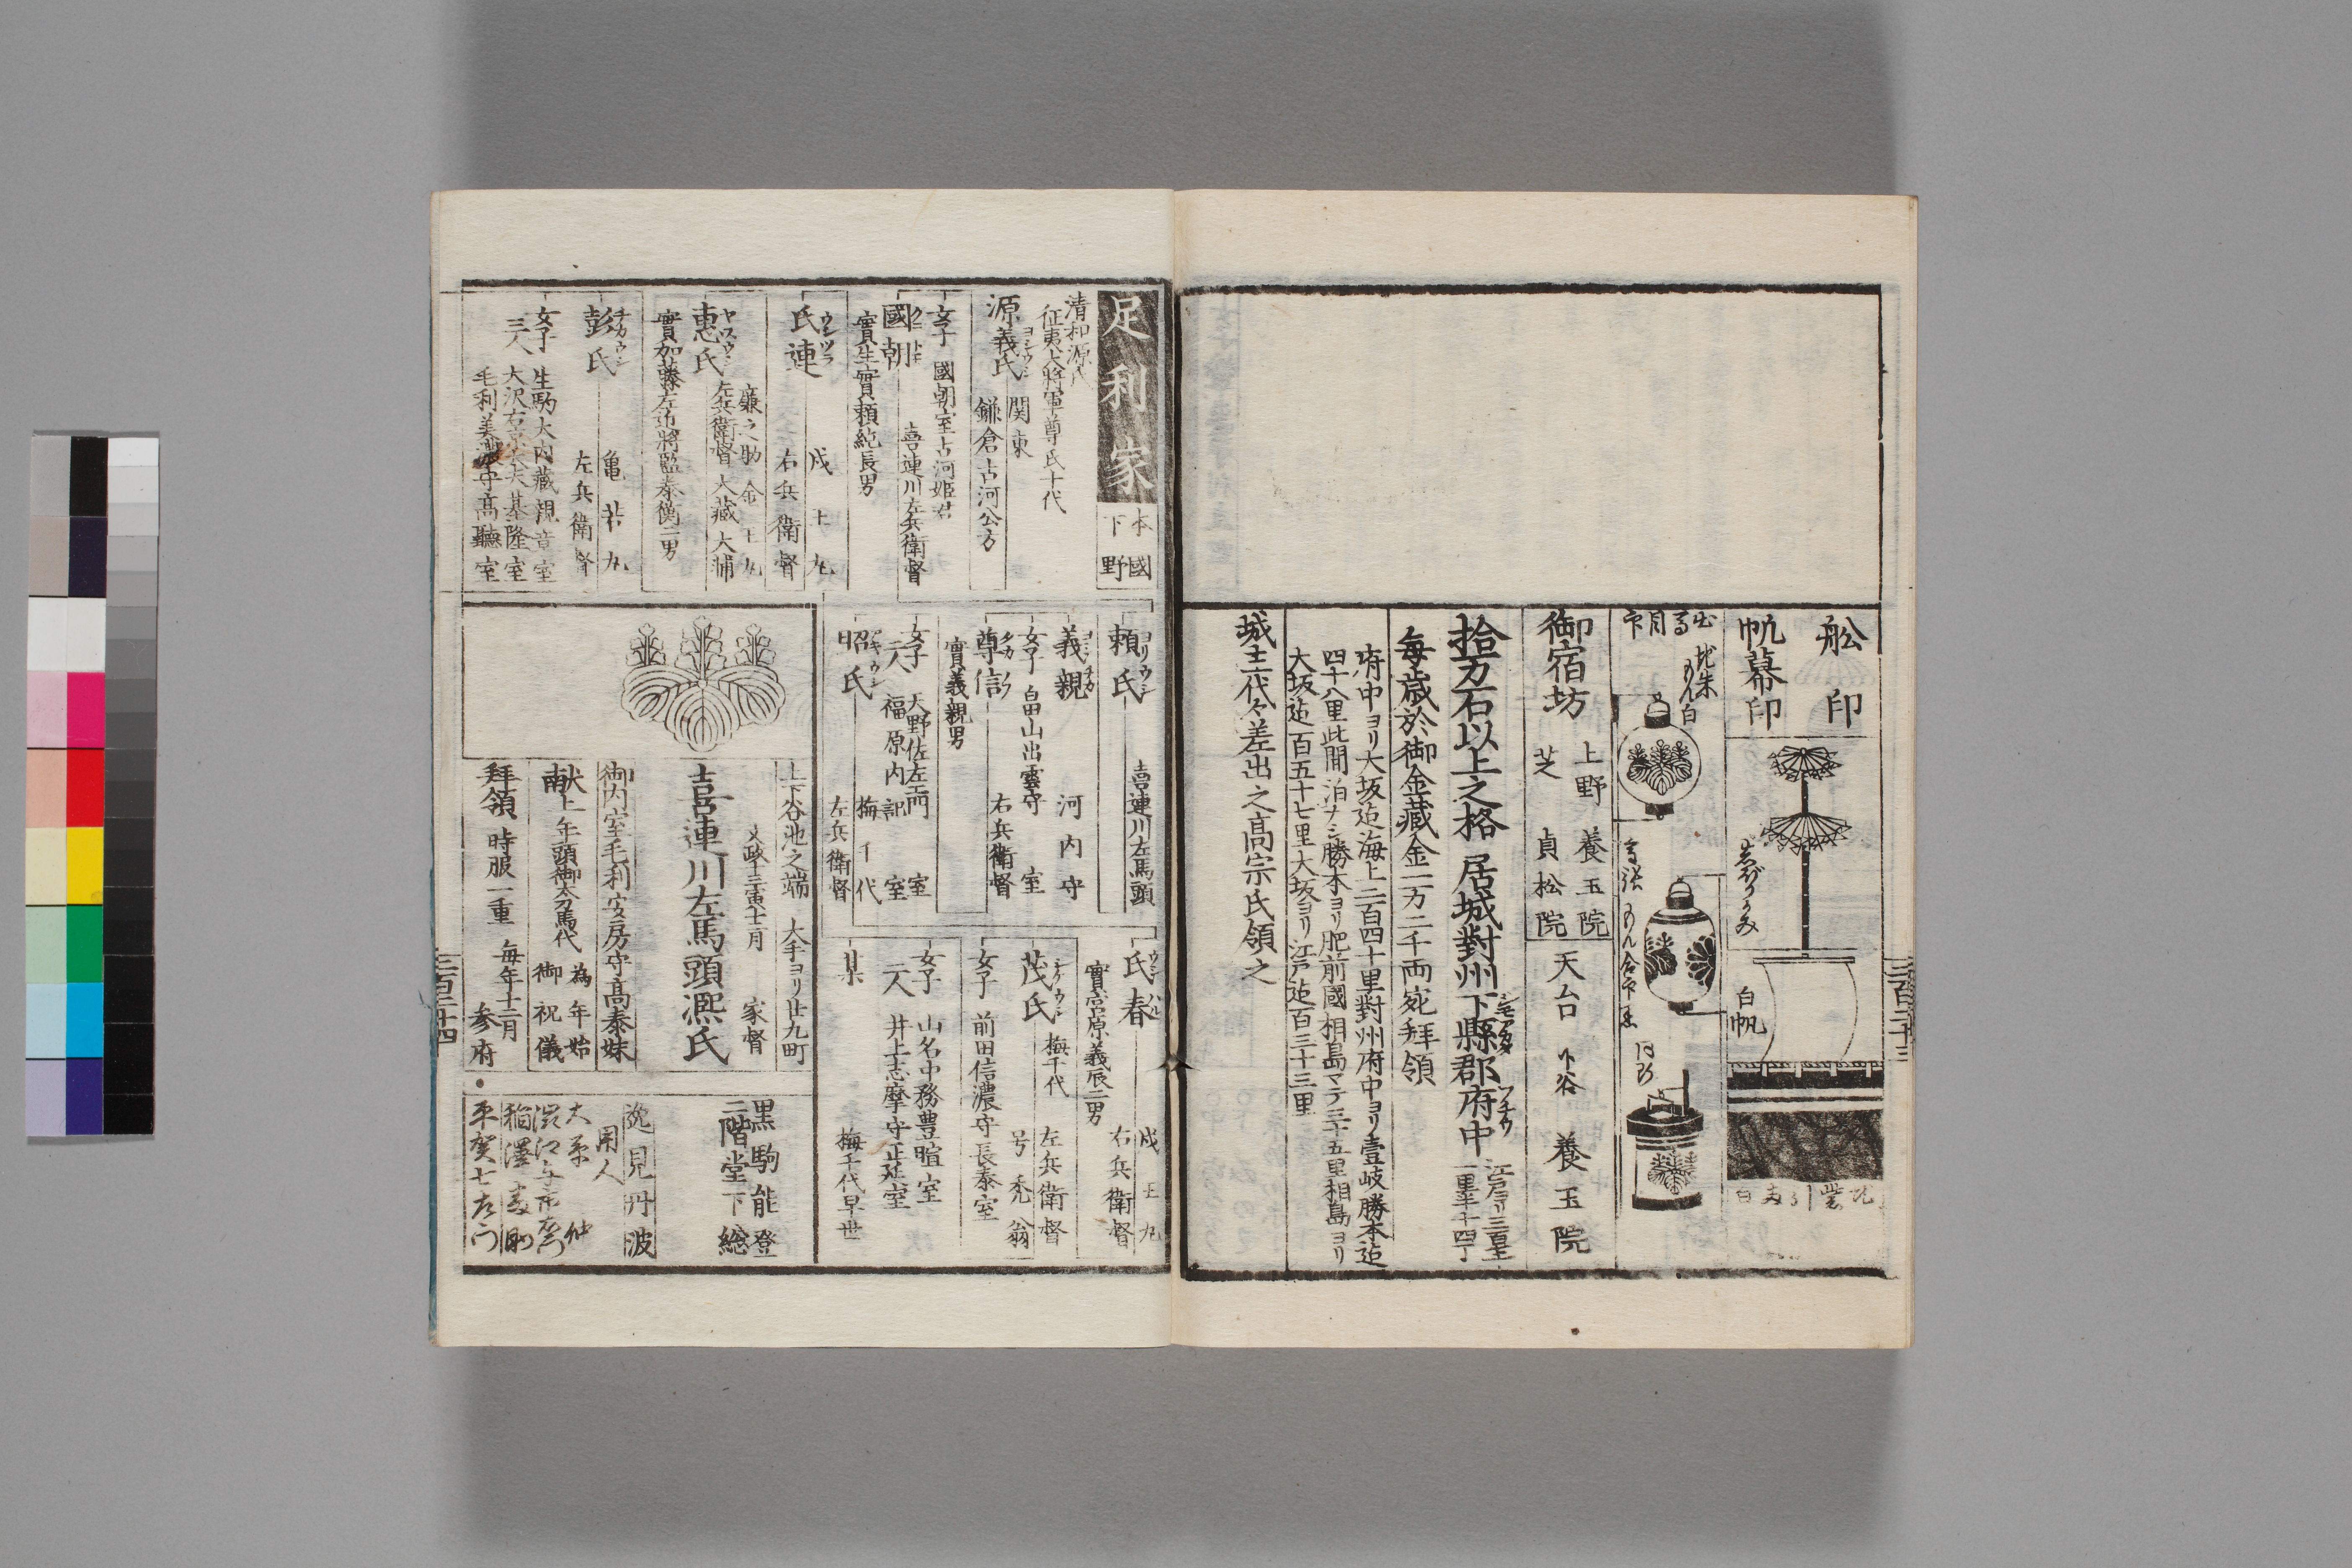 舩印
帆幕印
白帆
地朱
もん白
御宿坊
上野 養玉院
芝 貞松院
天台 下谷 養玉院
拾万石以上之格 居城對州下縣郡府中
毎歳於御金藏金一万二千両宛拜領
府中ヨリ大坂迠海上二百四十里對州府中ヨリ壹岐勝本迠
四十八里此間泊ナシ勝本ヨリ肥前國相島マテ三十五里相島ヨリ
大坂迠一百五十七里大坂ヨリ江戸迠百三十三里
城主代々差出之高宗氏領之
三百二十三
足利家
本國
下野
清和源氏
征夷大將軍尊氏十代
源義氏
ヨシウシ
関東
鎌倉古河公方
女子 國朝室古河姫君
國朝
喜連川左兵衛督
實生實頼純長男
氏連
右兵衛督
惠氏
ヤスウシ
左兵衛督 大藏大輔
實加藤左近將監泰衡二男
彭氏
チカウシ
亀若丸
左兵衛督
女子
三人
生駒大内藏親章室
大沢右京大夫基隆室
毛利美濃守高聽室
頼氏
ヨリウシ
喜連川左馬頭
義親
ヨシチカ
河内守
女子 畠山出雲守室
尊信
右兵衛督
實義親男
女子
二人
天野佐左衛門室
福原内記室
昭氏
梅千代
左兵衛督
氏春
右兵衛督
實宮原義辰二男
茂氏
シケウシ
梅千代
左兵衛督
号禿翁
女子 前田信濃守長泰室
女子
二人
山名中務豊暄室
井上志摩守正延室
某
梅千代早世
上下谷池之端 大手ヨリ廿九町
文政十三寅十二月 家督
喜連川左馬頭凞氏
御内室毛利安房守高泰妹
献上 年頭御太刀馬代
為年始
御祝儀
拜領 時服一重
毎年十二月
参府
黒駒能登
二階堂下総
逸見丹波
用人
三百二十四